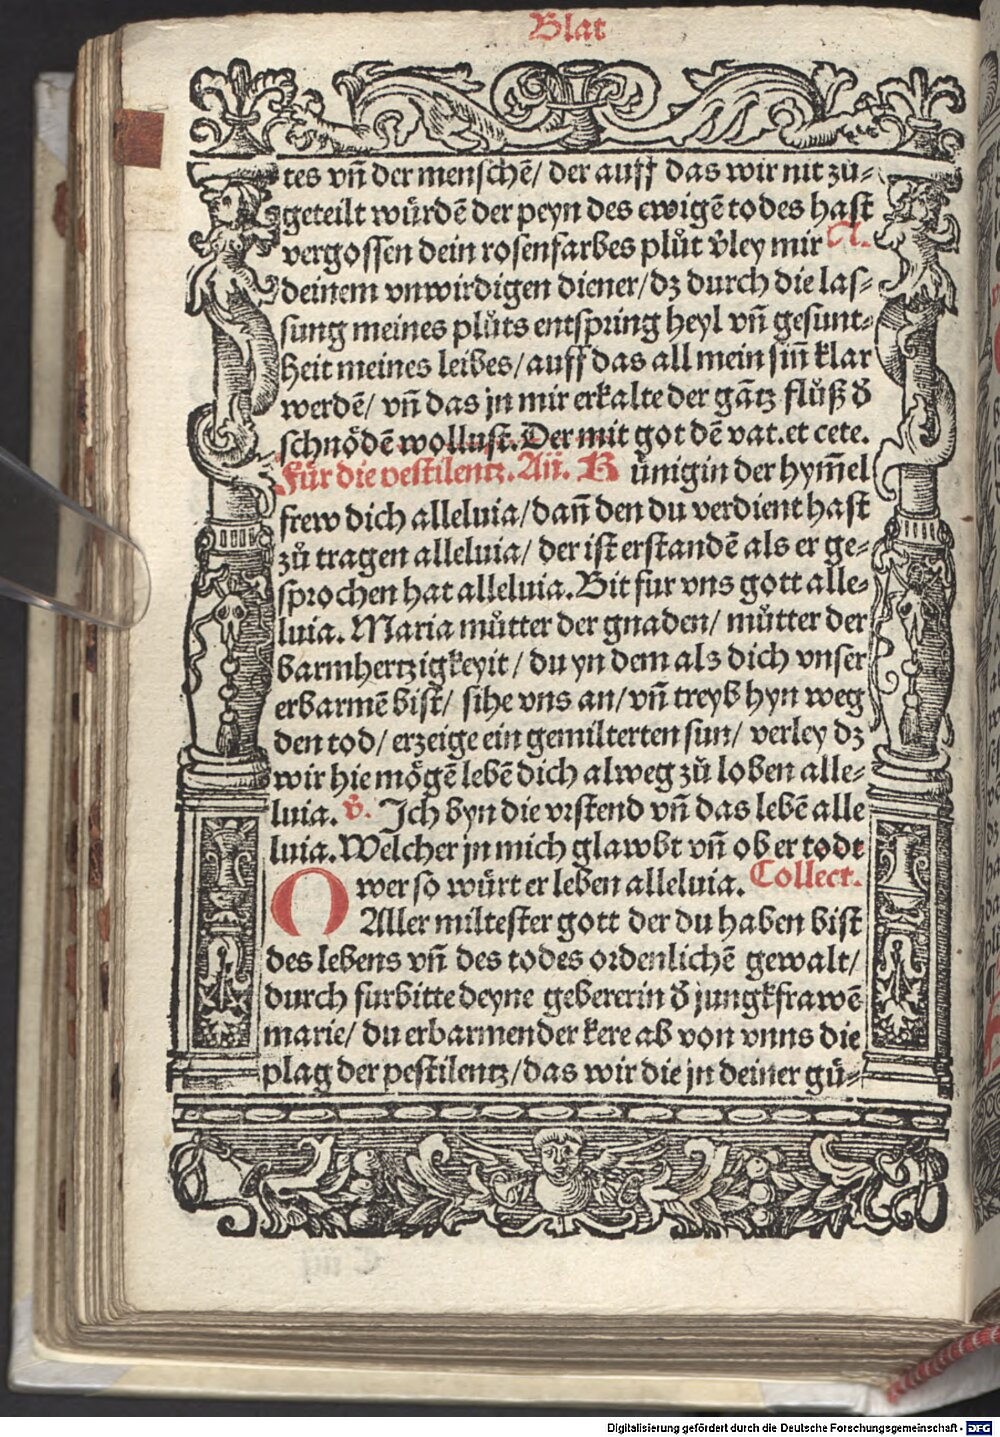 Blat
tes vñ der menschē/ der auff das wir nit zů-
geteilt würdē der peyn des ewigē todes hast
vergossen dein rosenfarbes plůt v̉ley mir A.
deinem vnwirdigen diener/ dz durch die las-
sung meines plůts entspring heyl vñ gesunt-
heit meines leibes/ auff das all mein sin̄ klar
werdē/ vñ das jn mir erkalte der gātz flůß d̓
schnödē wollust. Der mit got dē vat. et cete.
Für die pestilentz. Añ. K ünigin der hym̄el
frew dich alleluia/ dan̄ den du verdient hast
zů tragen alleluia/ der ist erstandē als er ge-
sprochen hat alleluia. Bit fur vns gott alle-
luia. Maria můtter der gnaden/ můtter der
barmhertzigkeyit/ du yn dem als dich vnser
erbarmē bist/ sihe vns an/ vñ treyb hyn weg
den tod/ erzeige ein gemilterten sun/ verley dz
wir hie mögē lebē dich alweg zů loben alle-
luia. v̉. Ich byn die vrstend vñ das lebē alle
luia. Welcher jn mich glawbt vñ ob er todt
wer so würt er leben alleluia. Collect.
O Aller miltester gott der du haben bist
des lebens vñ des todes ordenlichē gewalt/
durch furbitte deyne gebererin d̓ jungkfrawē
marie/ du erbarmender kere ab von vnns die
plag der pestilentz/ das wir die jn deiner gü-
Digitalisierung gefördert durch die Deutsche Forschungsgemeinschaft - DFG